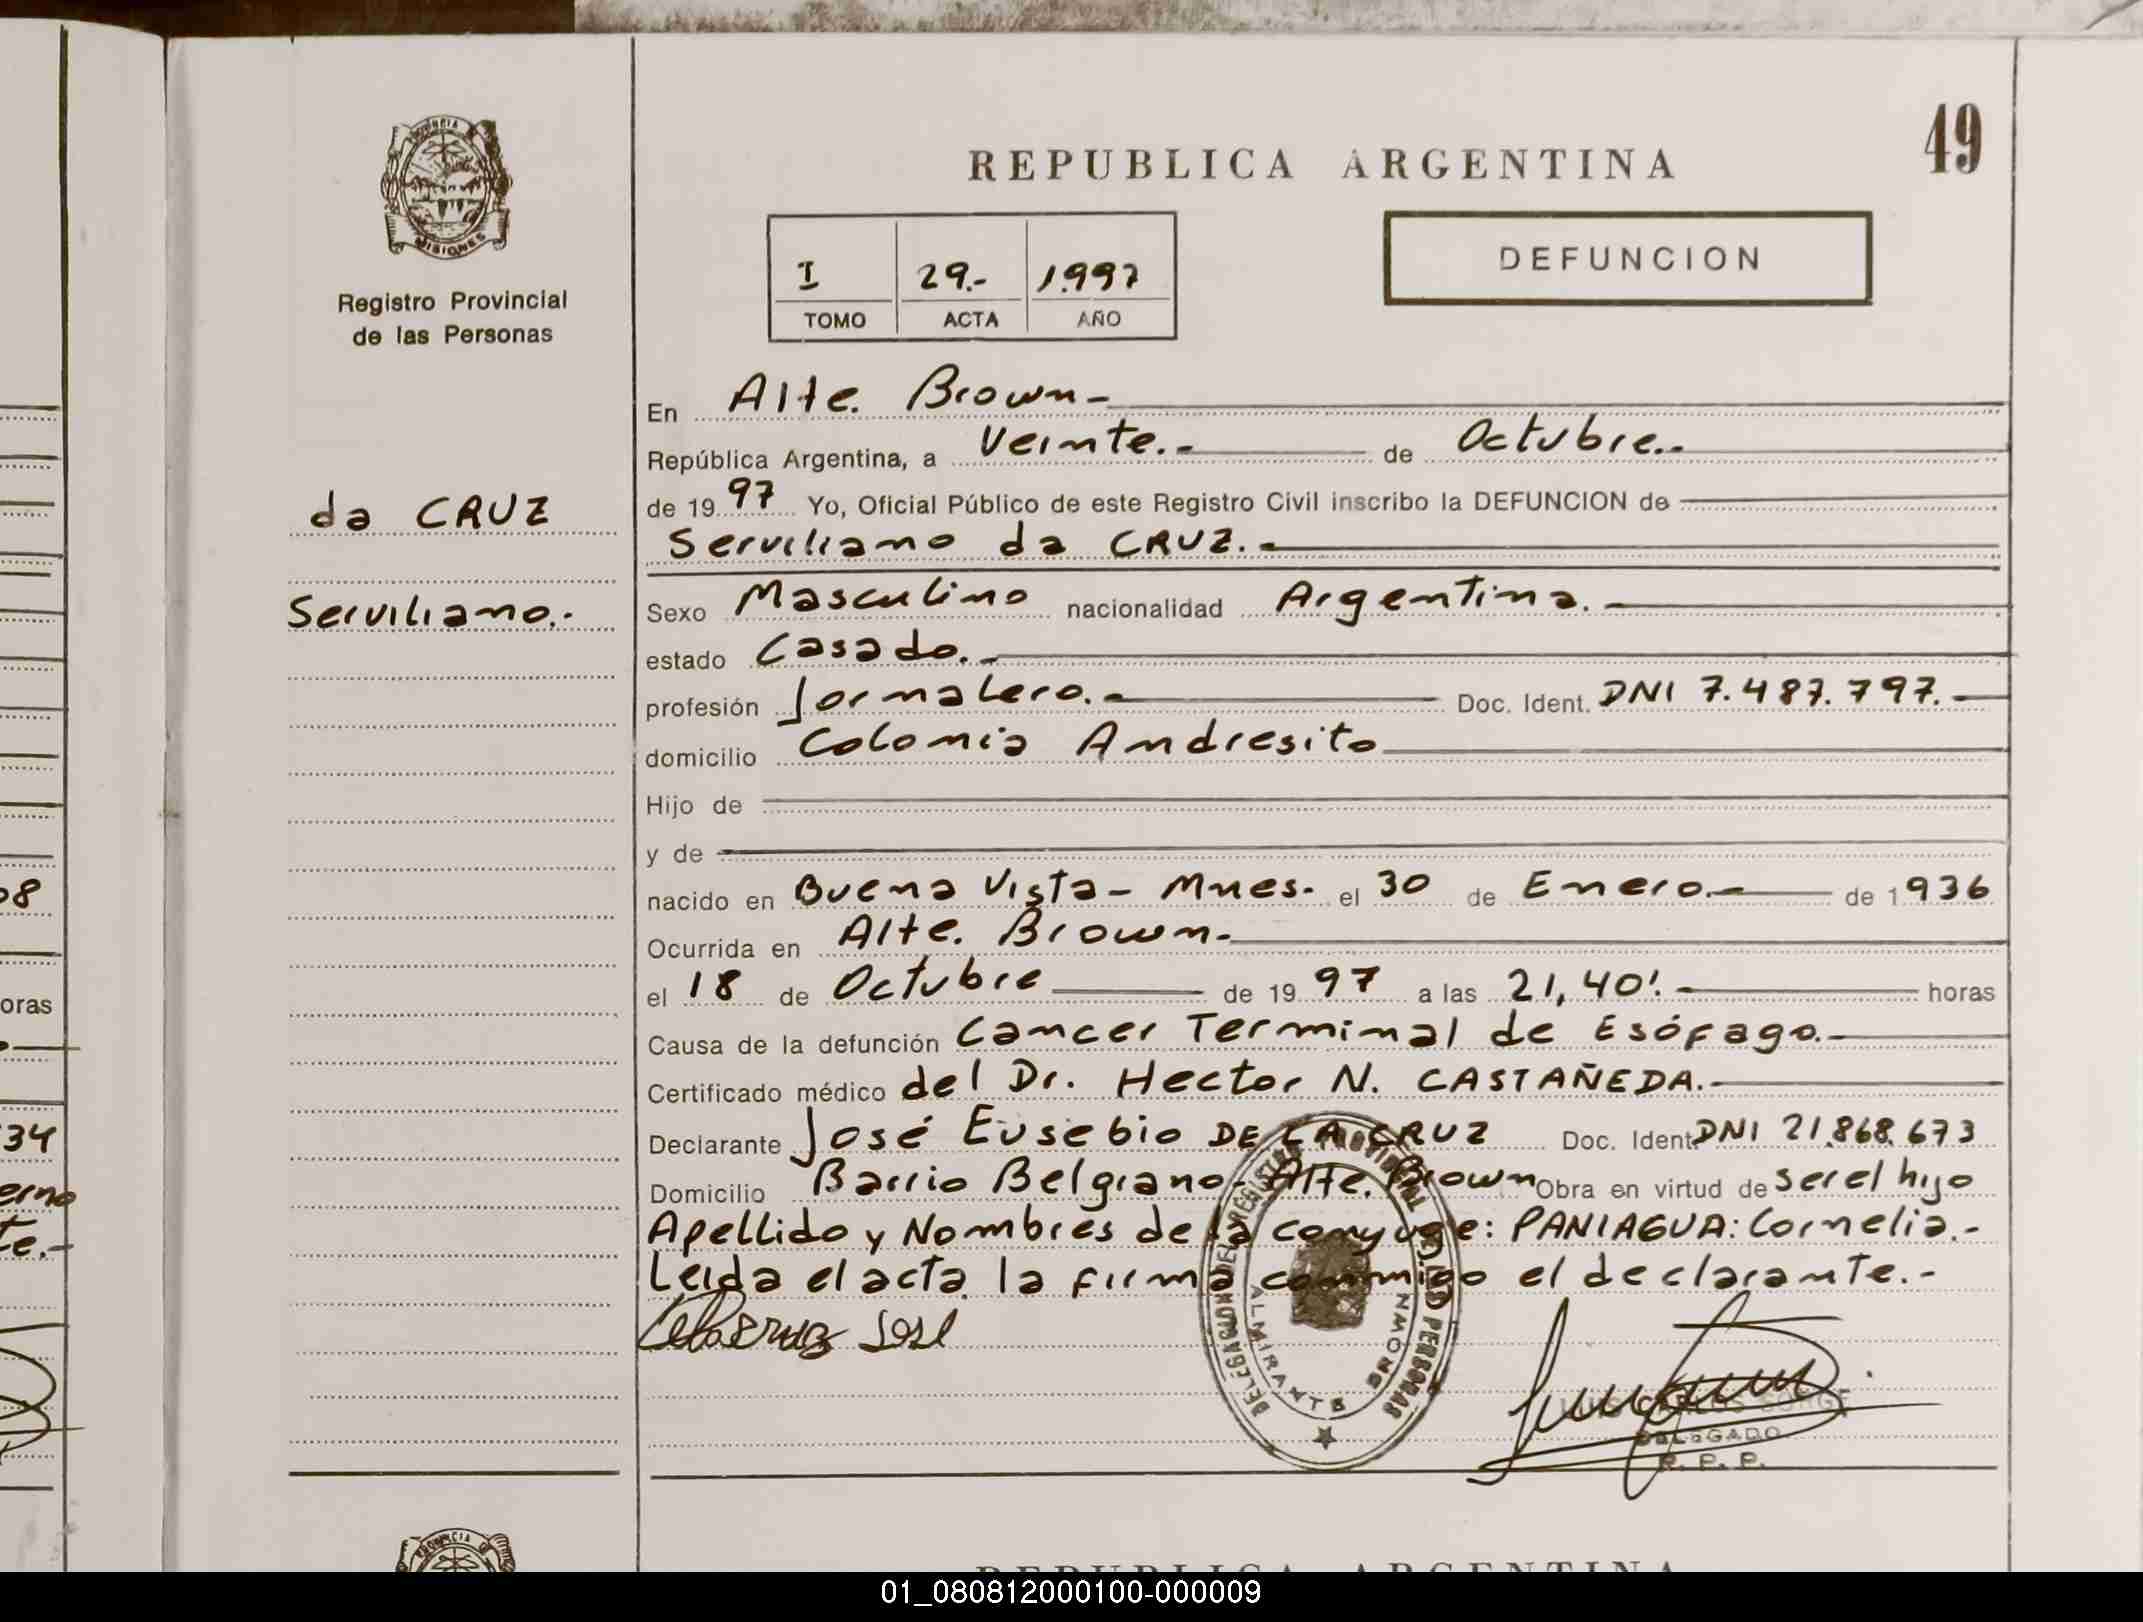 49
PROVINCIA DE
MISIONES
Registro Provincial
de las Personas
da CRUZ
Serviliano.-
REPUBLICA ARGENTINA
I 29.- 1.997
TOMO ACTA AÑO
DEFUNCION
En Alte. Brown-
República Argentina, a Veinte.- de Octubre.-
de 1997 Yo, Oficial Público de este Registro Civil inscribo la DEFUNCION de
Serviliano da CRUZ.-
Sexo Masculino nacionalidad Argentina.
estado Casado.-
profesión Jornalero.- Doc. Ident. DNI 7.487.797.-
domicilio Colonia Andresito
Hijo de
y de
nacido en Buena Vista- Mnes. el 30 de Enero.- de 1936
Ocurrida en Alte. Brown-
el 18 de Octubre de 1997 a las 21,40'.- horas
Causa de la defunción Cancer Terminal de Esófago.-
Certificado médico del Dr. Hector N. CASTAÑEDA.-
Declarante José Eusebio DE LA CRUZ Doc. Ident. DNI 21.868.673
Domicilio Barrio Belgrano- Alte. Brown Obra en virtud de ser el hijo
Apellido y Nombres de la conyuge: PANIAGUA: Cornelia.-
Leida el acta la firma conmigo el declarante.-
José
DELEGACION DEL REGISTRO PROVINCIAL DE LAS PERSONAS
ALMIRANTE BROWN
LUIS CARLOS SORGE
DELEGADO
R. P. P.
08
oras
34
erno
te.-
PROVINCIA
REPUBLICA ARGENTINA
01_080812000100-000009